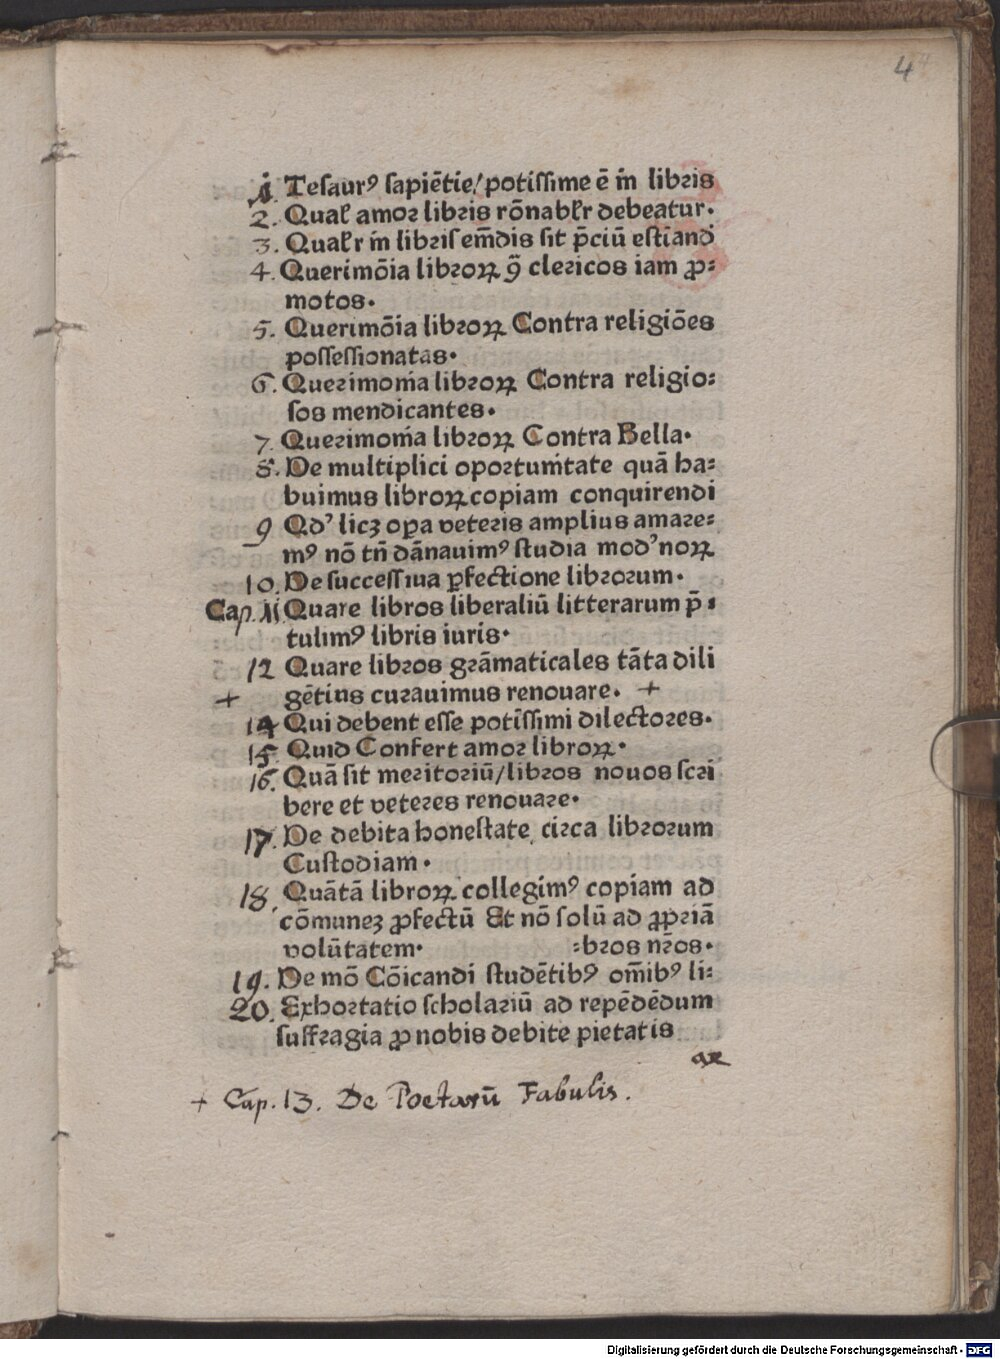 4
1. Tesaurꝰ sapiētie/ potissime ē in libris
2. Qualꝉ amor libris rōnablꝉr debeatur.
3. Qualꝉr in libris em̄dis sit p̄ciū estiand
4. Querimōia libroꝝ ꝯ̄ clericos iam ꝓ⸗
motos.
5. Querimōia libroꝝ Contra religiōes
possessionatas.
6. Querimonia libroꝝ Contra religio⸗
sos mendicantes.
7. Querimonia libroꝝ Contra Bella.
8. De multiplici oportunitate quā ha⸗
buimus libroꝝ copiam conquirendi
9 Qd' licꝫ oꝑa veteris amplius amare⸗
mꝰ nō tn̄ dānauimꝰ studia mod'noꝝ
10. De successiua ꝑfectione librorum.
Cap. 11 Quare libros liberaliū litterarum p̄⸗
tulimꝰ libris iuris.
12 Quare libros grāmaticales tāta dili
+ gētius curauimus renouare. +
14 Qui debent esse potissimi dilectores.
15. Quid Confert amor libroꝝ.
16. Quā sit meritoriū/libros nouos scri
bere et veteres renouare.
17. De debita honestate circa librorum
Custodiam.
18. Quātā libroꝝ collegimꝰ copiam ad
cōmuneꝫ ꝓfectū Et nō solū ad ꝓpriā
volūtatem. ⸗bros nr̄os.
19. De mō Cōicandi studētibꝰ om̄ibꝰ li⸗
20. Exhortatio scholariū ad repēdēdum
suffragia ꝓ nobis debite pietatis
+ Cap. 13. De Poetarū Fabulis.
Digitalisierung gefördert durch die Deutsche Forschungsgemeinschaft - DFG